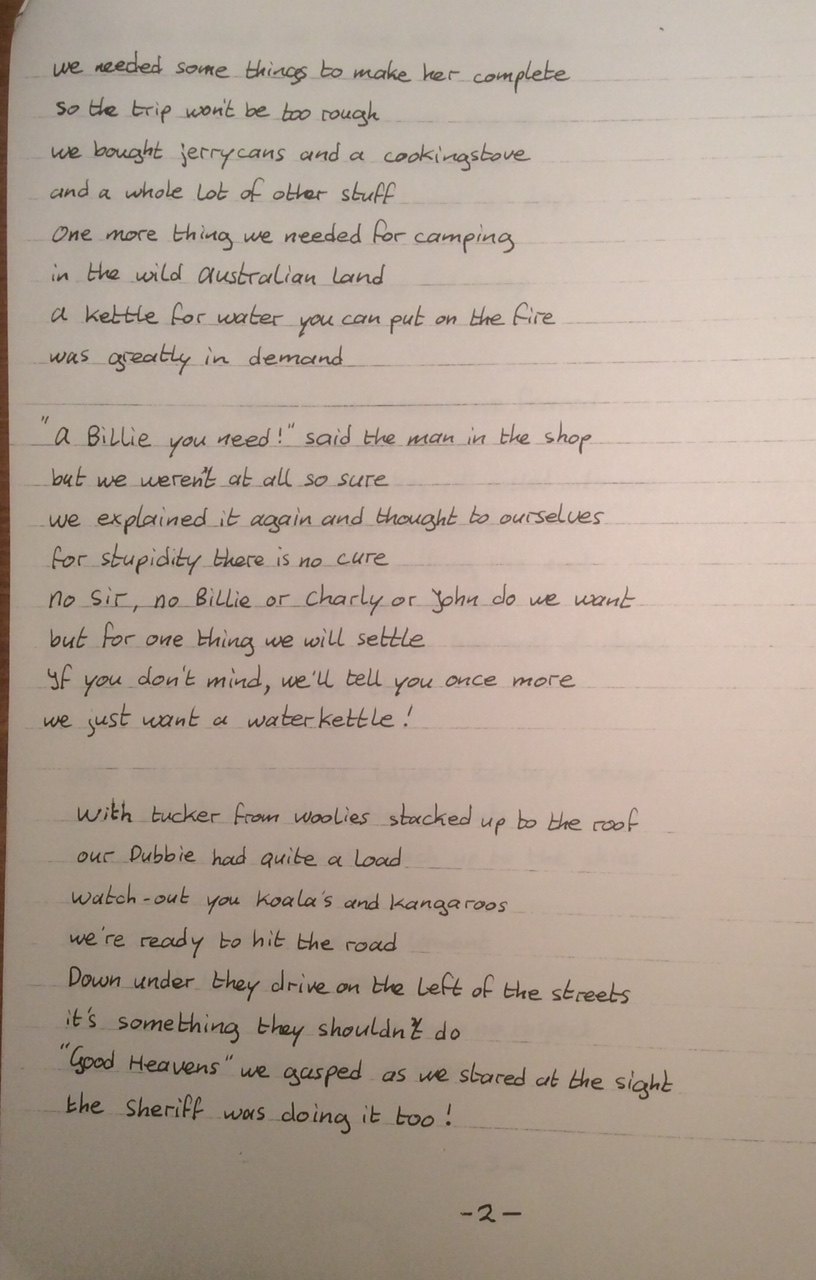 we needed some things to make her complete
so the trip won't be too rough
we bought jerrycans and a cookingstove
and a whole lot of other stuff
One more thing we needed for camping
in the wild Australian land
a kettle for water you can put on the fire
was greatly in demand
"A Billie you need!" said the man in the shop
but we weren't at all so sure
we explained it again and thought to ourselves
for stupidity there is no cure
no Sir, no Billie or Charly or John do we want
but for one thing we will settle
If you don't mind, we'll tell you once more
we just want a waterkettle!
With tucker from woolies stacked up to the roof
our Dubbie had quite a load
watch-out you Koala's and Kangaroos
we're ready to hit the road
Down under they drive on the left of the streets
it's something they shouldn't do
"Good Heavens" we gasped as we stared at the sight
the Sheriff was doing it too!
-2-